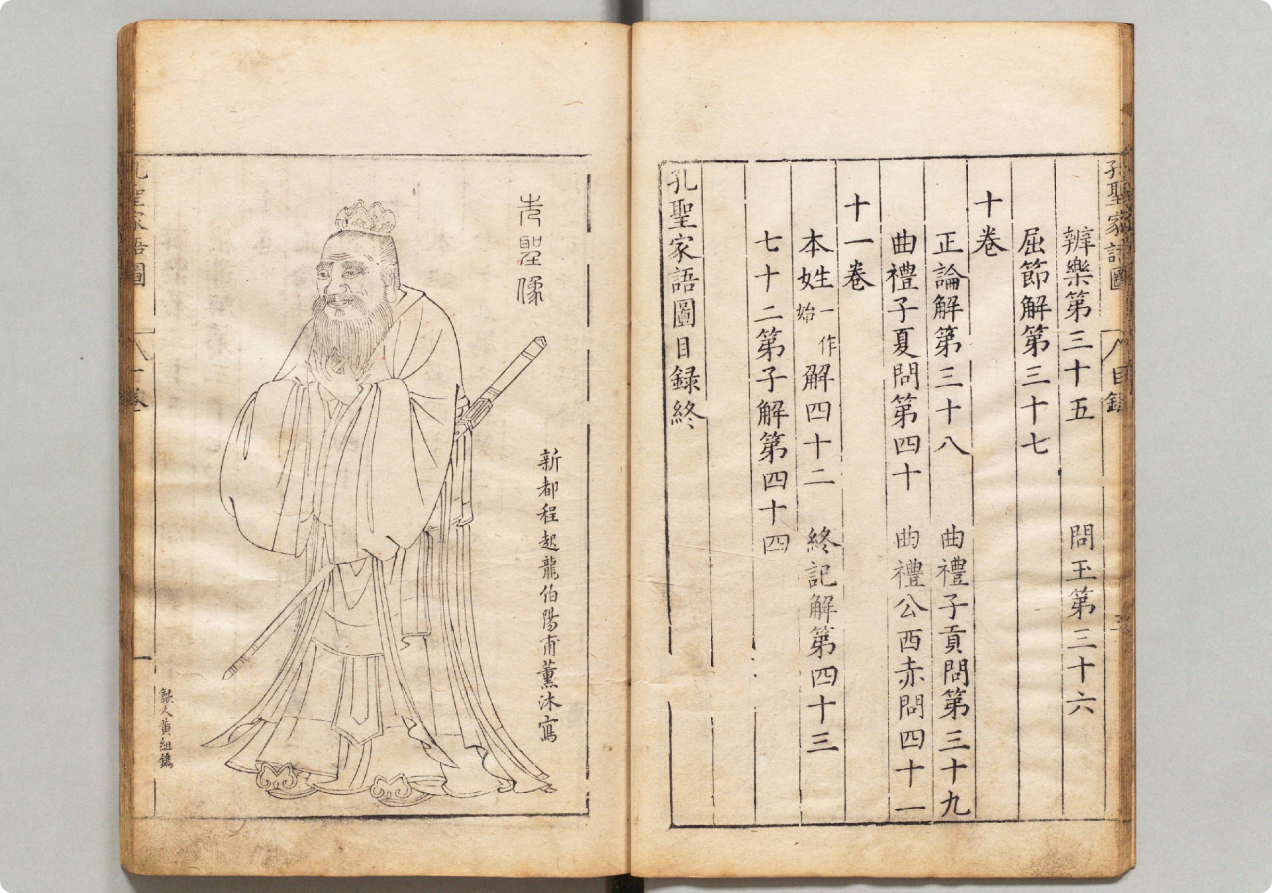 孔聖家語圖 目錄
辨樂第三十五 問玉第三十六
屈節解第三十七
十卷
正論解第三十八 曲禮子貢問第三十九
曲禮子夏問第四十 曲禮公西赤問四十一
十一卷
本姓一作始解四十二 終記解第四十三
七十二第子解第四十四
孔聖家語圖目録終
先聖像
新都程起龍伯陽甫薰沐寫
歙人黄組鐫
孔聖家語圖 一卷 一